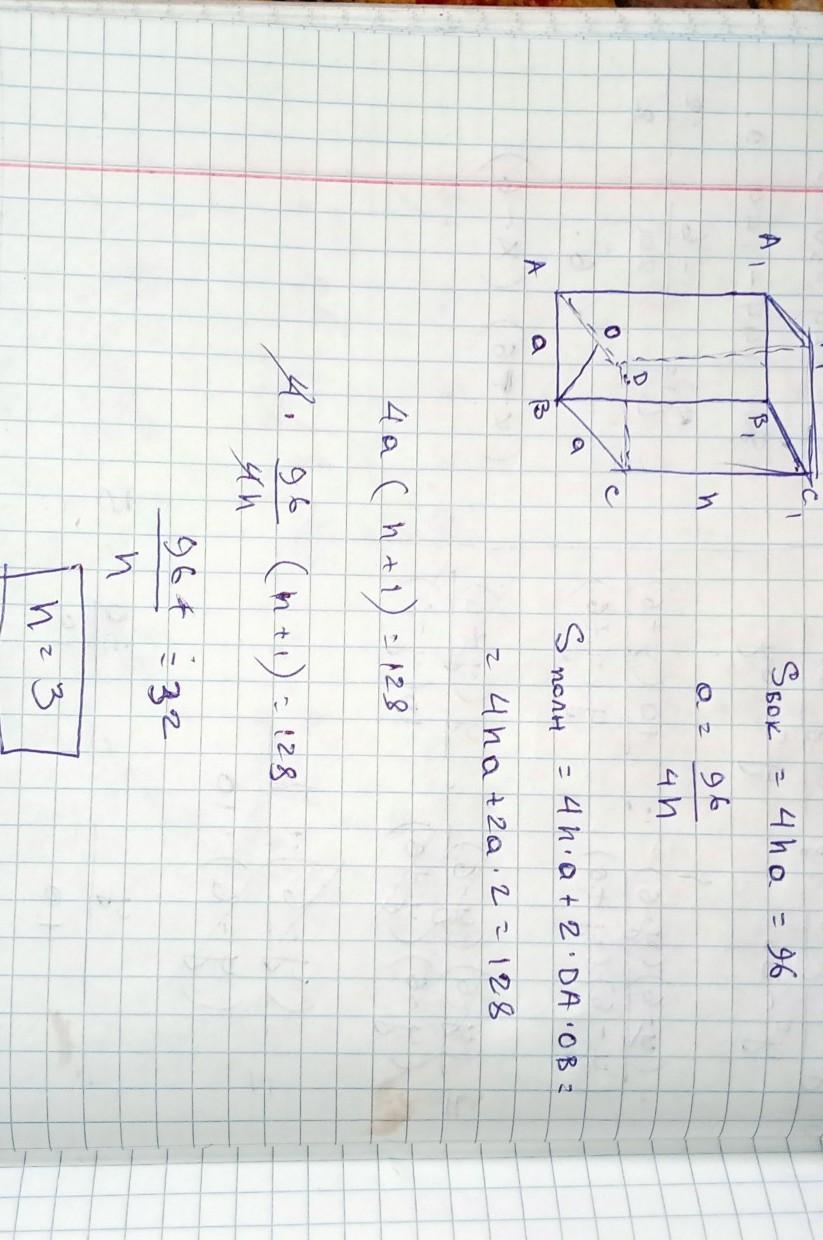 A₁
B₁
C₁
A
a
B
a
C
O
D
h
Sбок = 4ha = 96
a = 96/4h
Sполн = 4h·a + 2·DA·OB =
= 4ha + 2a·2 = 128
4a(h+1) = 128
4· 96/4h (h+1) = 128
96/h = 32
h = 3